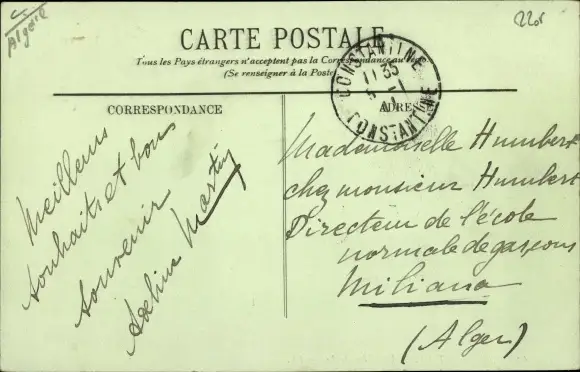 Algérie
2205
CARTE POSTALE
Tous les Pays étrangers n'acceptent pas la Correspondance au recto
(Se renseigner à la Poste)
CONSTANTINE
11 35
CONSTANTINE
CORRESPONDANCE
ADRESSE
Meilleurs
souhaits et bon
souvenir
Martin
Mademoiselle Humbert
chez monsieur Humbert
Directeur de l'école
normale de garçons
Miliana
(Alger)